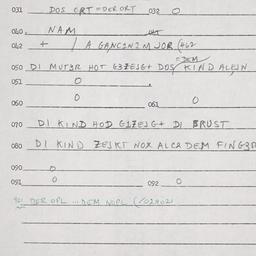 031 DOS ORT = DER ORT 032 O
040. NAM
042 + / A GANCINIM JOR (462
= DEM
050 DI MUTƷR HOT GƷZEJGT DOS KIND ALEJN
051 O
060 O 061 O
070 DI KIND HOD G1ZEJGT DI BRUST
080 DI KIND ZEJKT NOX ALCA DEM FINGƷR
090 O
091 O 092 O
DER OPL ... DEM NOPL